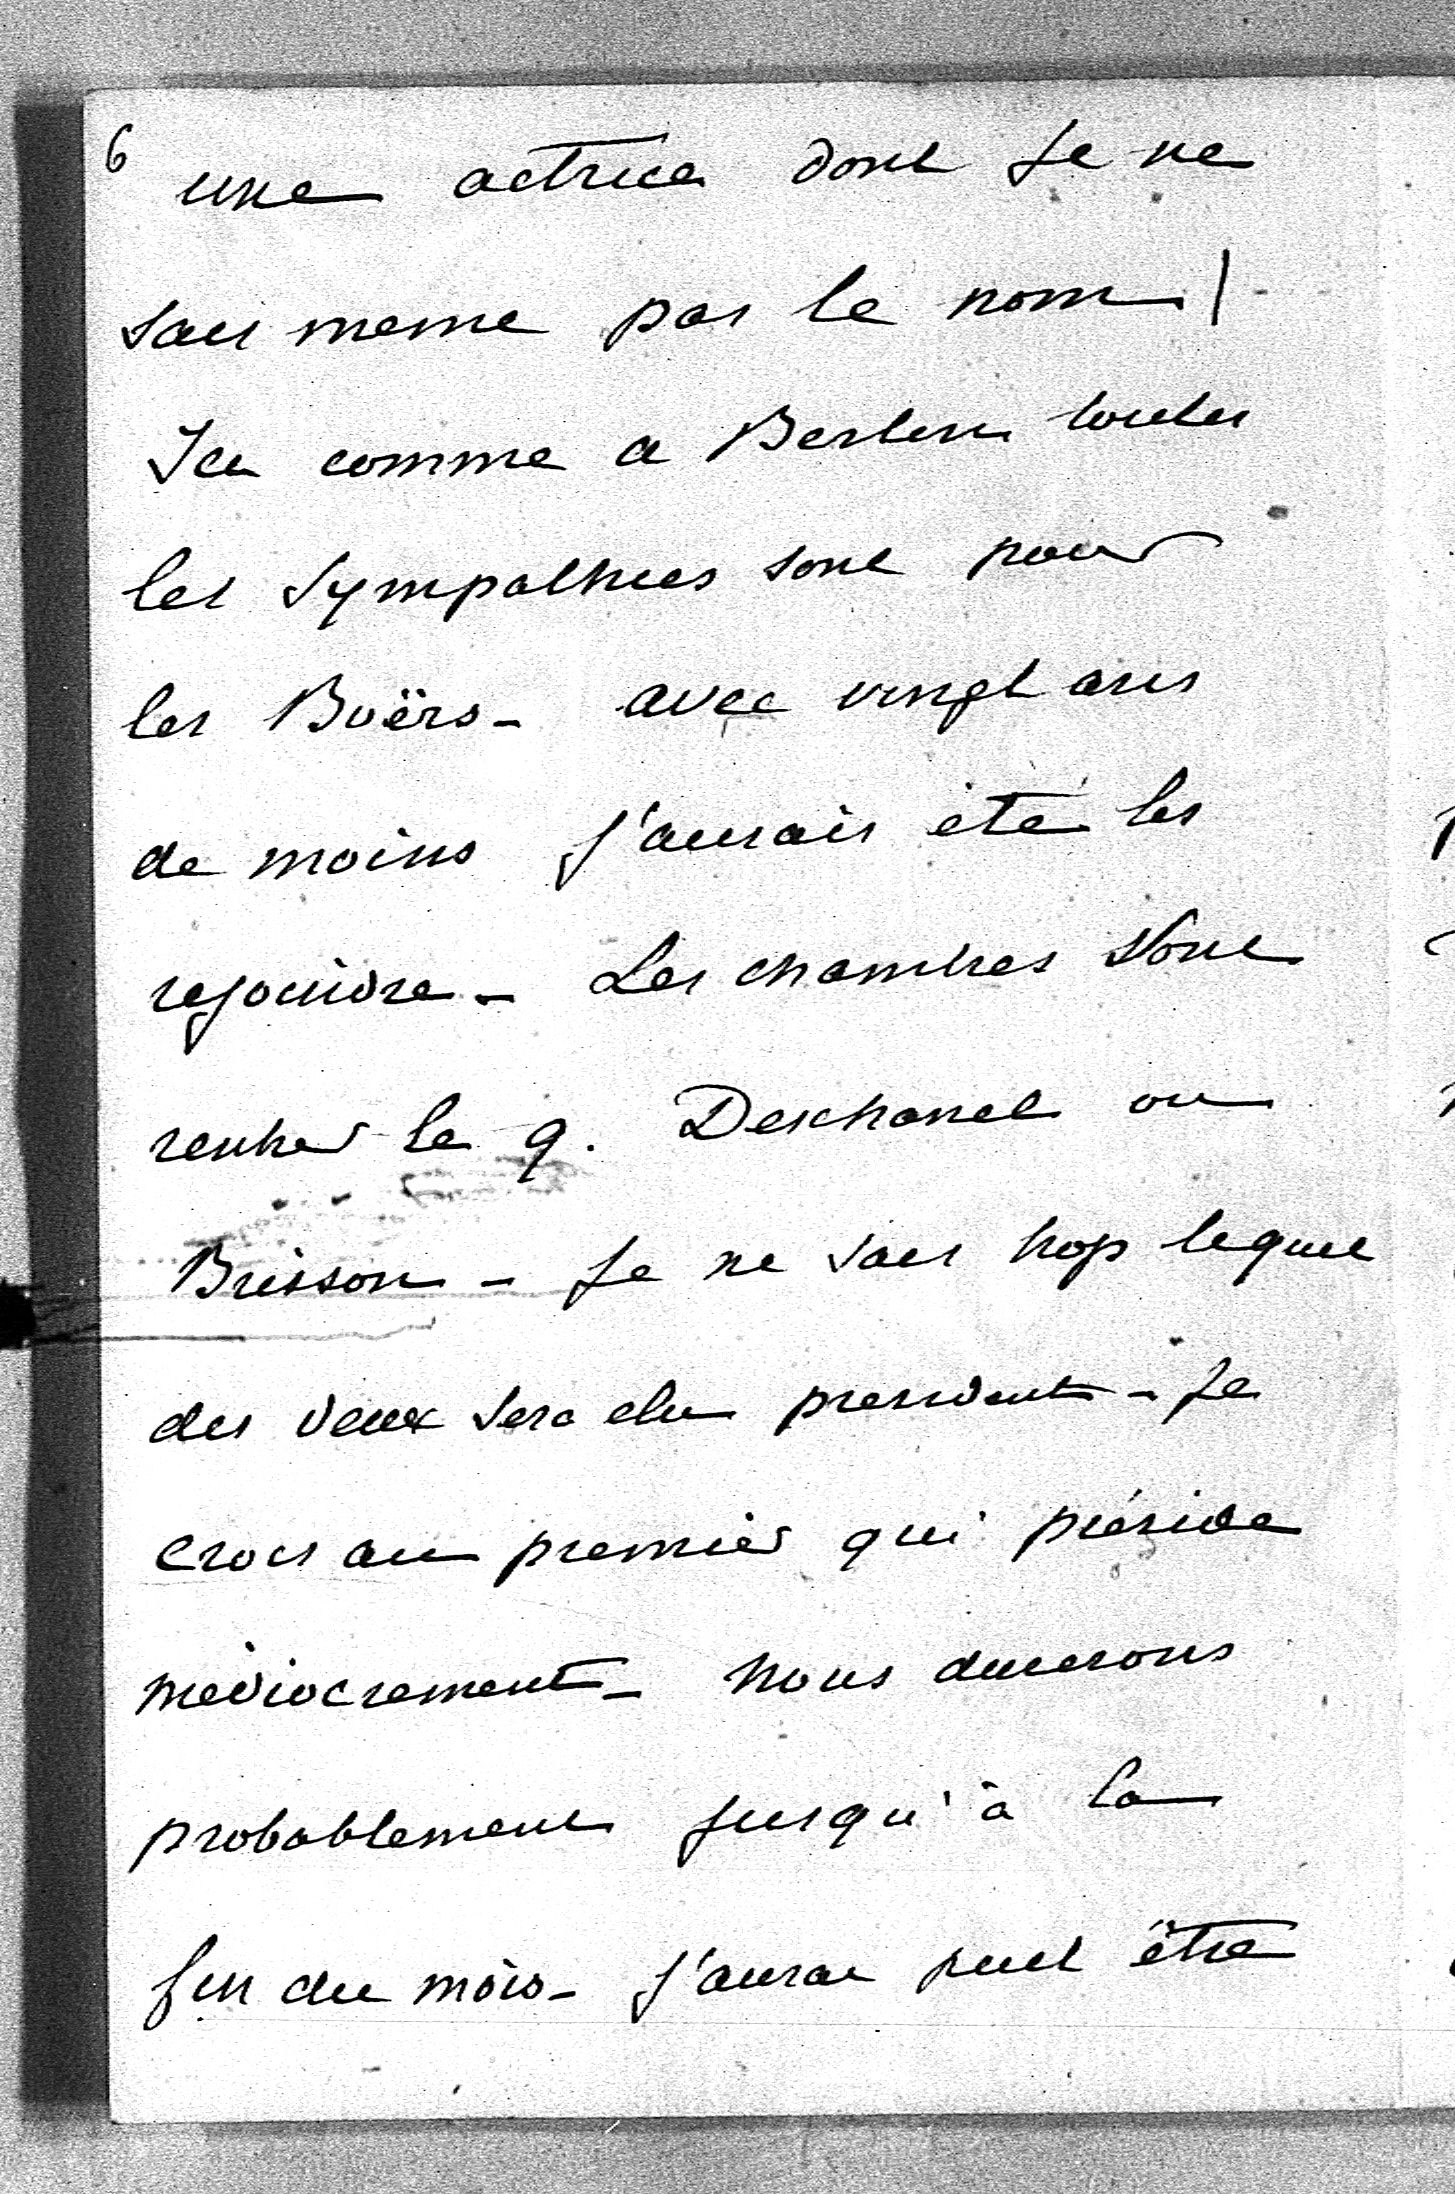 6
une actrice dont je ne
sais meme pas le nom !
Ici comme a Berlin toutes
les sympathies sont pour
les Boërs - avec vingt ans
de moins j'aurais été les
rejoindre - Les chambres vont
rentrer le 9. Deschanel ou
Brisson - je ne sais trop lequel
des deux sera elu president - je
crois au premier qui préside
médiocrement - nous durerons
probablement jusqu'à la
fin du mois - j'aurai peut être